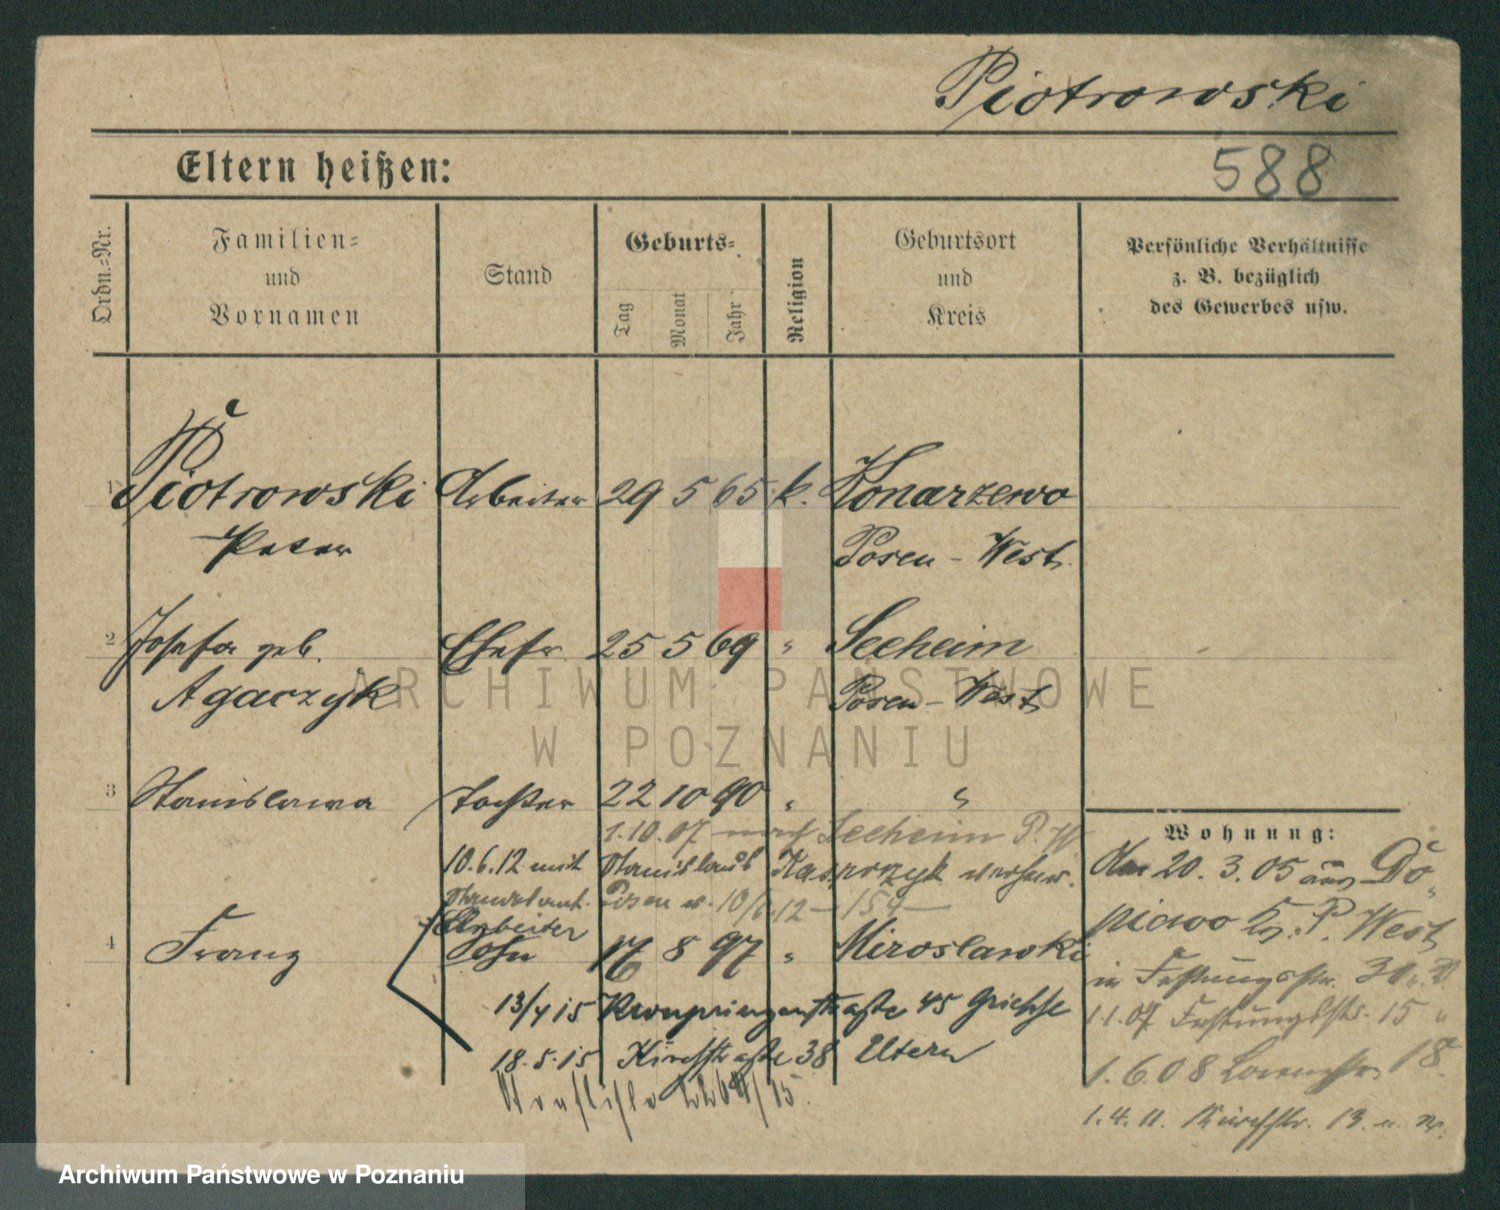 Piotrowski
Eltern heißen:
588
Ordn.-Nr.
Familien-
und
Vornamen
Stand
Geburts-
Tag
Monat
Jahr
Religion
Geburtsort
und
Kreis
Persönliche Verhältnisse
z. B. bezüglich
des Gewerbes usw.
1 Piotrowski Arbeiter 29 5 65 k. Konarzewo
Peter Posen-West
2 Josefa geb. Ehefr. 25 5 69 " Seeheim
Agaczyk Posen-West
3 Stanislawa Tochter 22 10 90 " "
1.10.07 nach Seeheim P. W
10.6.12 mit Stanislaus Kasprzyk verheir.
Standesamt Posen 10/6.12 - 159 -
Arbeiter
4 Franz Sohn 17 8 97 " Miroslawki
13/4 15 Kronprinzenstraße 45
18.5.15 Kirchstraße 38 Eltern
Wohnung:
20.3.05 aus Do
piewo Kr. P. West
in Festungsstr.
1.1.07 Festungsstr. 15 "
1.6.08 18
1.4.11 Kirchstr. 13
ARCHIWUM PAŃSTWOWE
W POZNANIU
Archiwum Państwowe w Poznaniu